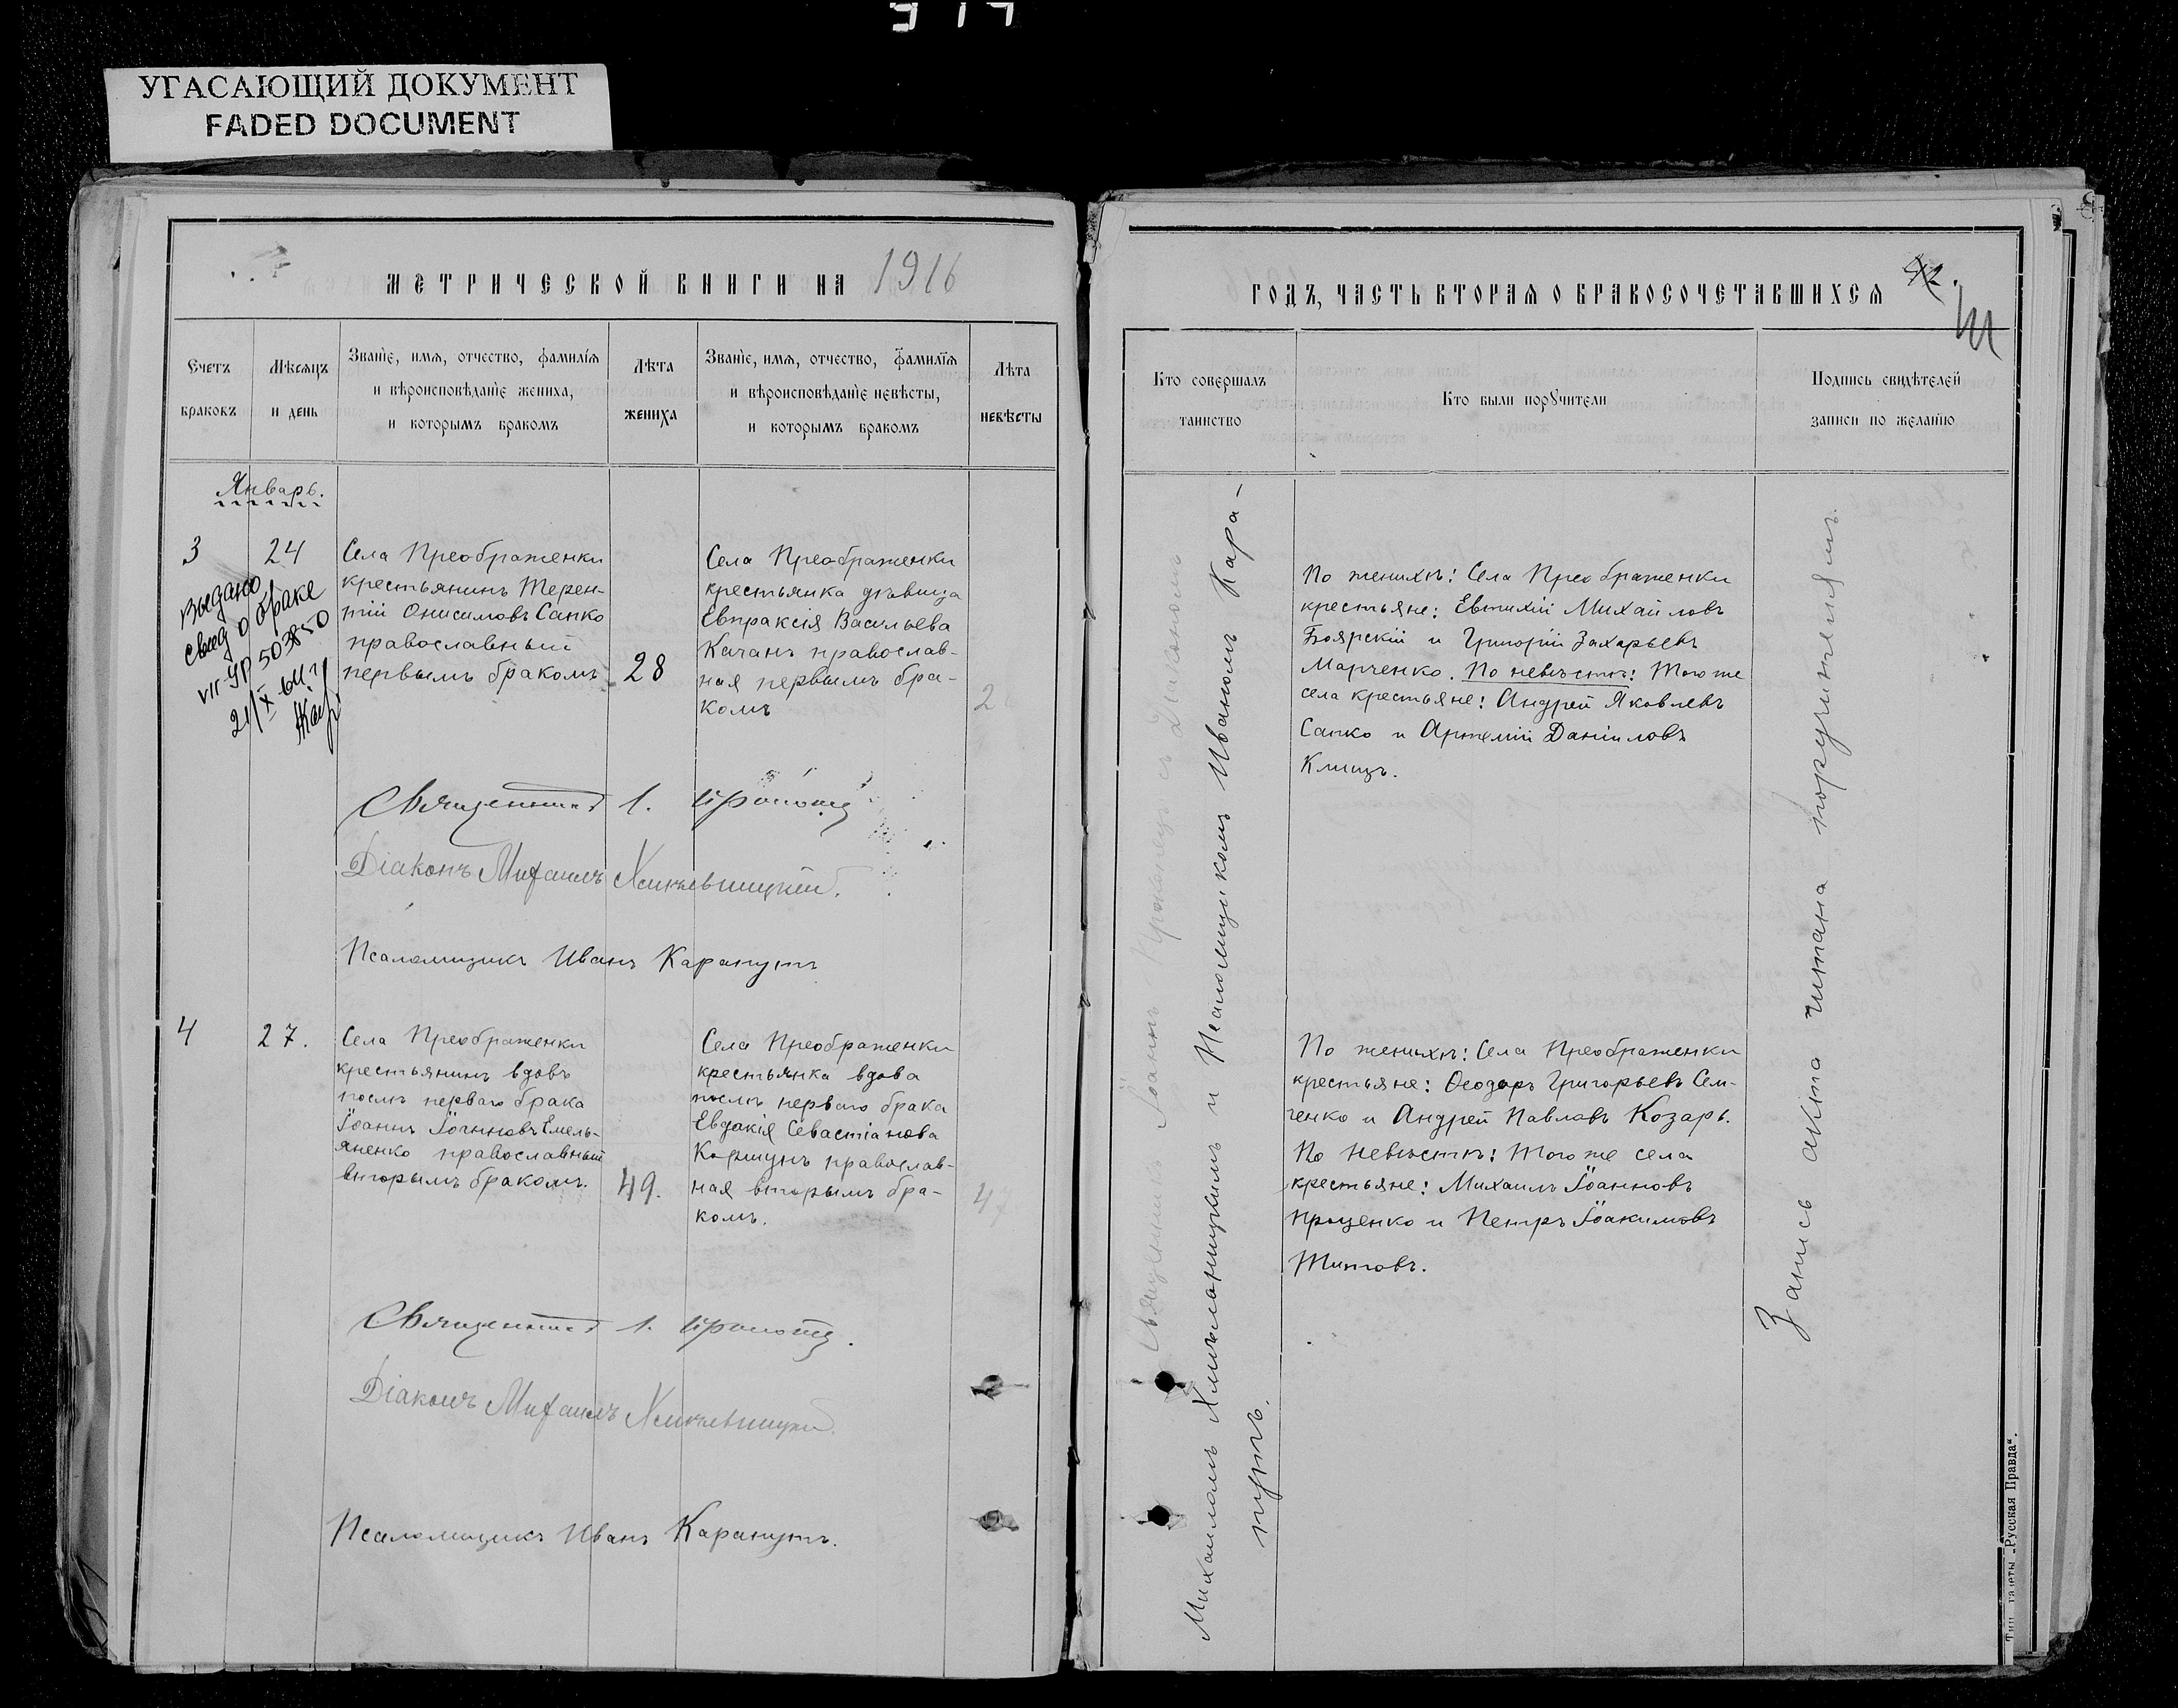 УГАСАЮЩИЙ ДОКУМЕНТ
FADED DOCUMENT
МЕТРИЧЕСКОЙ КНИГИ НА 1916
Счетъ
браковъ
Мѣсяцъ
и день
Званіе, имя, отчество, фамилія
и вѣроисповѣданіе жениха,
и которымъ бракомъ
Лѣта
жениха
Званіе, имя, отчество, фамилія
и вѣроисповѣданіе невѣсты,
и которымъ бракомъ
Лѣта
невѣсты
Январь.
3
24
Выдано
свид о браке
VII-УР 503850
21/X-64 г
Села Преображенки
крестьянинъ Терен-
тій Онисимовъ Сапко
православный
первымъ бракомъ
28
Села Преображенки
крестьянка дѣвица
Евпраксія Васильева
Качанъ православ-
ная первымъ бра-
комъ
2
Священникъ І.
Діаконъ Михаилъ
Псаломщикъ Иванъ Карапутъ
4
27.
Села Преображенки
крестьянинъ вдовъ
послѣ перваго брака
Іоаннъ Іоанновъ Емель-
яненко православный
вторымъ бракомъ.
49.
Села Преображенки
крестьянка вдова
послѣ перваго брака
Евдакія Севастіанова
Коршунъ православ-
ная вторымъ бра-
комъ.
47
Священникъ І.
Діаконъ Михаилъ
Псаломщикъ Иванъ Карапутъ.
ГОДЪ, ЧАСТЬ ВТОРАЯ О БРАКОСОЧЕТАВШИХСЯ
42.
Кто совершалъ
таинство
Кто были поручители
Подпись свидѣтелей
записи по желанію
Священникъ Іоаннъ съ Діакономъ
Михаиломъ и Псаломщикомъ Иваномъ Кара-
путъ.
По женихѣ: Села Преображенки
крестьяне: Евтихій Михайловъ
Боярскій и Григорій Захарьевъ
Марченко. По невѣстѣ: Того же
села крестьяне: Андрей Яковлевъ
Сапко и Артемій Даніиловъ
Клищъ.
По женихѣ: Села Преображенки
крестьяне: Ѳеодоръ Григорьевъ Сем-
ченко и Андрей Павлавъ Козарь.
По невѣстѣ: Того же села
крестьяне: Михаилъ Іоанновъ
Проценко и Петръ Іоакимовъ
Титовъ.
Запись акта читана поручителямъ.
Тип. газеты „Русская Правда“.